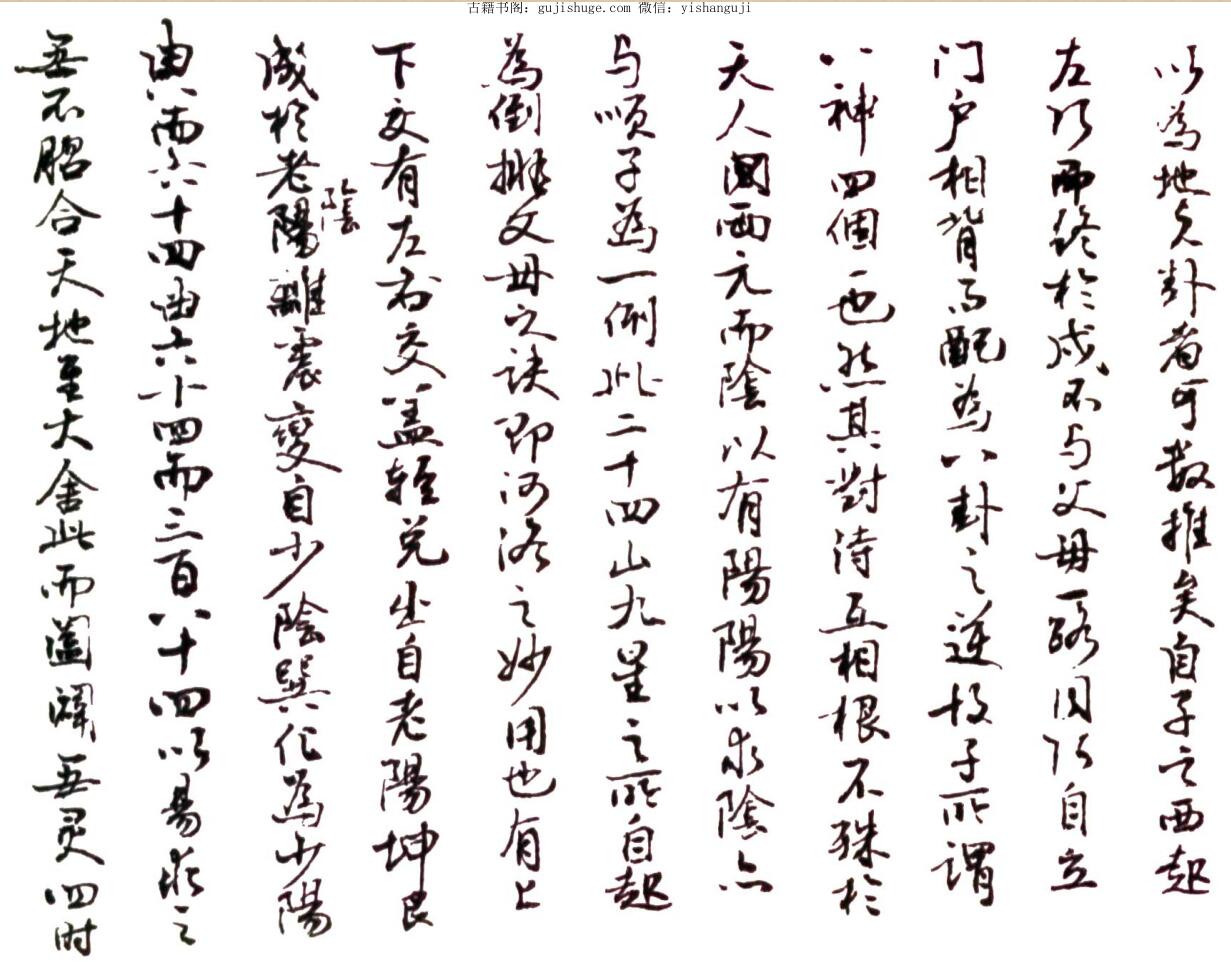 古籍书阁：gujishuge.com 微信：yishanguji
以為地之卦者可数推矣自子之西起
左行而終於戌不与父母一路因以自立
门户相背而配為八卦之逆投子所謂
八神四個一也然其對待互相根不殊於
天人両元而陰以有陽陽以求陰亦
与順子為一例此二十四山九星之所自起
為倒排父母之诀即河洛之妙用也有上
下交有左右交盖乾兑出自老陽坤艮
成於老陰離震變自少陰巽化為少陽
由八而六十四由六十四而三百八十四以易求之
無不脗合天地至大舍此而闔闢無灵四时